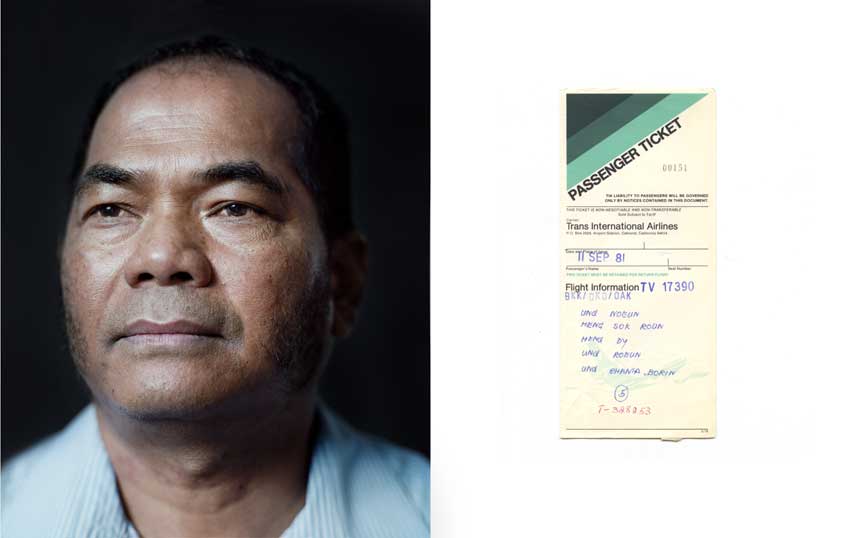 PASSENGER TICKET
00151
TIA LIABILITY TO PASSENGERS WILL BE GOVERNED
ONLY BY NOTICES CONTAINED IN THIS DOCUMENT.
THIS TICKET IS NON-NEGOTIABLE AND NON-TRANSFERABLE
Sold Subject to Tariff
Carrier:
Trans International Airlines
P.O. Box 2504, Airport Station, Oakland, California 94614
Date and Place of Issue
11 SEP 81
Passenger's Name Serial Number
THIS TICKET MUST BE RETAINED FOR RETURN FLIGHT
Flight Information TV 17390
BKK/OKO/OAK
UNG NOEUN
MENG SOK ROUN
HENG DY
UNG ROEUN
UNG CHANTA BORIN
5
T-328253